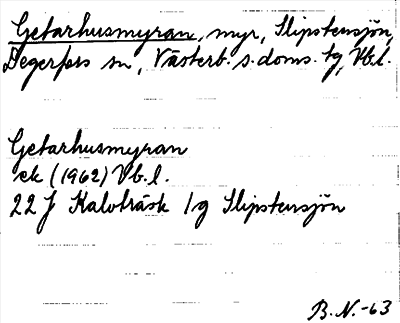 Getarhusmyran, myr, Slipstensjön,
Degerfors sn, Västerb. s. doms. tg, Vb.l.
Getarhusmyran
ek (1962) Vb.l.
22 J Kalvträsk 1g Slipstensjön
B.N.-63